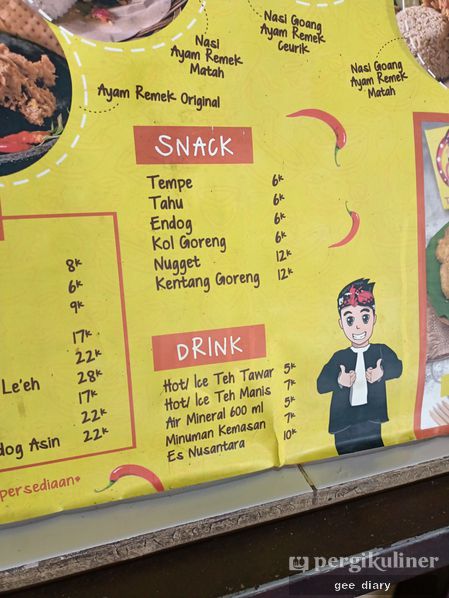 Nasi
Ayam Remek
Matah
Nasi Goang
Ayam Remek
Ceurik
Nasi Goang
Ayam Remek
Matah
Ayam Remek Original
SNACK
Tempe 6K
Tahu 6K
Endog 6K
Kol Goreng 6K
Nugget 12K
Kentang Goreng 12K
8K
6K
9K
17K
22K
Le'eh 28K
17K
22K
dog Asin 22K
persediaan*
DRINK
Hot/ Ice Teh Tawar 5K
Hot/ Ice Teh Manis 7K
Air Mineral 600 ml 5K
Minuman Kemasan 7K
Es Nusantara 10K
pergikuliner
gee_diary